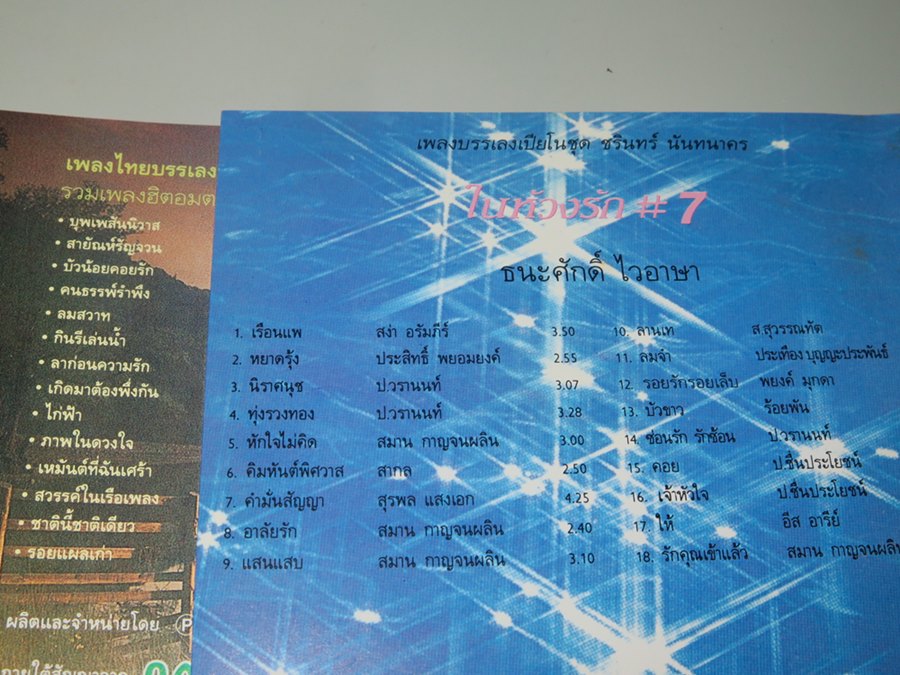 เพลงไทยบรรเลง
รวมเพลงฮิตอมต
• บุพเพสันนิวาส
• สายัณห์รัญจวน
• บัวน้อยคอยรัก
• คนธรรพ์รำพึง
• ลมสวาท
• กินรีเล่นน้ำ
• ลาก่อนความรัก
• เกิดมาต้องพึ่งกัน
• ไก่ฟ้า
• ภาพในดวงใจ
• เหมันต์ที่ฉันเศร้า
• สวรรค์ในเรือเพลง
• ชาตินี้ชาติเดียว
• รอยแผลเก่า
ผลิตและจำหน่ายโดย
เพลงบรรเลงเปียโนชุด ชรินทร์ นันทนาคร
ในห้วงรัก # 7
ธนะศักดิ์ ไวอาษา
1. เรือนแพ สง่า อรัมภีร์ 3.50
2. หยาดรุ้ง ประสิทธิ์ พยอมยงค์ 2.55
3. นิราศนุช ป.วรานนท์ 3.07
4. ทุ่งรวงทอง ป.วรานนท์ 3.28
5. หักใจไม่คิด สมาน กาญจนผลิน 3.00
6. คิมหันต์พิศวาส สากล 2.50
7. คำมั่นสัญญา สุรพล แสงเอก 4.25
8. อาลัยรัก สมาน กาญจนผลิน 2.40
9. แสนแสบ สมาน กาญจนผลิน 3.10
10. ลานเท ส.สุวรรณทัต
11. ลมจ๋า ประเทือง บุญญะประพันธ์
12. รอยรักรอยเล็บ พยงค์ มุกดา
13. บัวขาว ร้อยพัน
14. ซ่อนรัก รักซ้อน ป.วรานนท์
15. คอย ป.ชื่นประโยชน์
16. เจ้าหัวใจ ป.ชื่นประโยชน์
17. ให้ อีส อารีย์
18. รักคุณเข้าแล้ว สมาน กาญจนผลิน